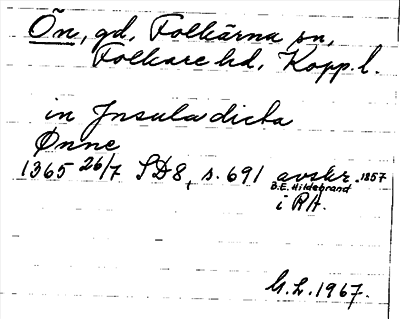 Ön, gd, Folkärna sn,
Folkare hd, Kopp. l.
in Insula dicta
Ønne
1365 26/7 SD8, s. 691 avskr. 1857
B.E. Hildebrand
i RA.
G.L. 1967.